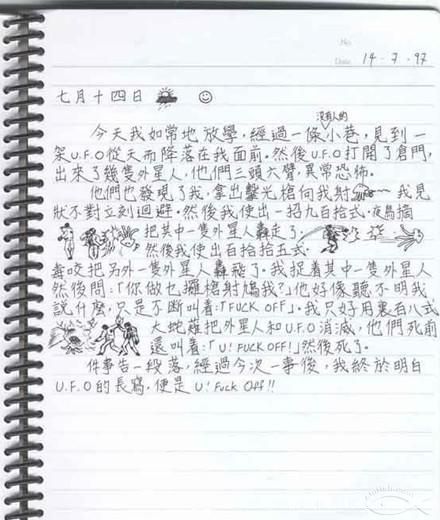 No.
Date 14.7.97
七月十四日
沒有人的
今天我如常地放學,經過一條小巷,見到一
架U.F.O從天而降落在我面前.然後U.F.O打開了倉門,
出來了幾隻外星人.他們三頭六臂,異常恐怖.
他們也發現了我,拿出擊光槍向我射 我見
狀不對立刻迴避.然後我使出一招九百拾式.夜鳥摘
把其中一隻外星人轟走了.
然後我使出百拾拾五式.
毒咬把另外一隻外星人轟飛了.我捉着其中一隻外星人
然後問:「你做乜攞槍射鳩我?」他好像聽不明我
說什麼,只是不斷叫着:「FUCK OFF」.我只好用裏百八式
大蛇薙把外星人和U.F.O消滅,他們死前
還叫着:「U! FUCK OFF!」然後死了.
件事告一段落,經過今次一事後,我終於明白
U.F.O的長寫,便是 U! Fuck Off!!